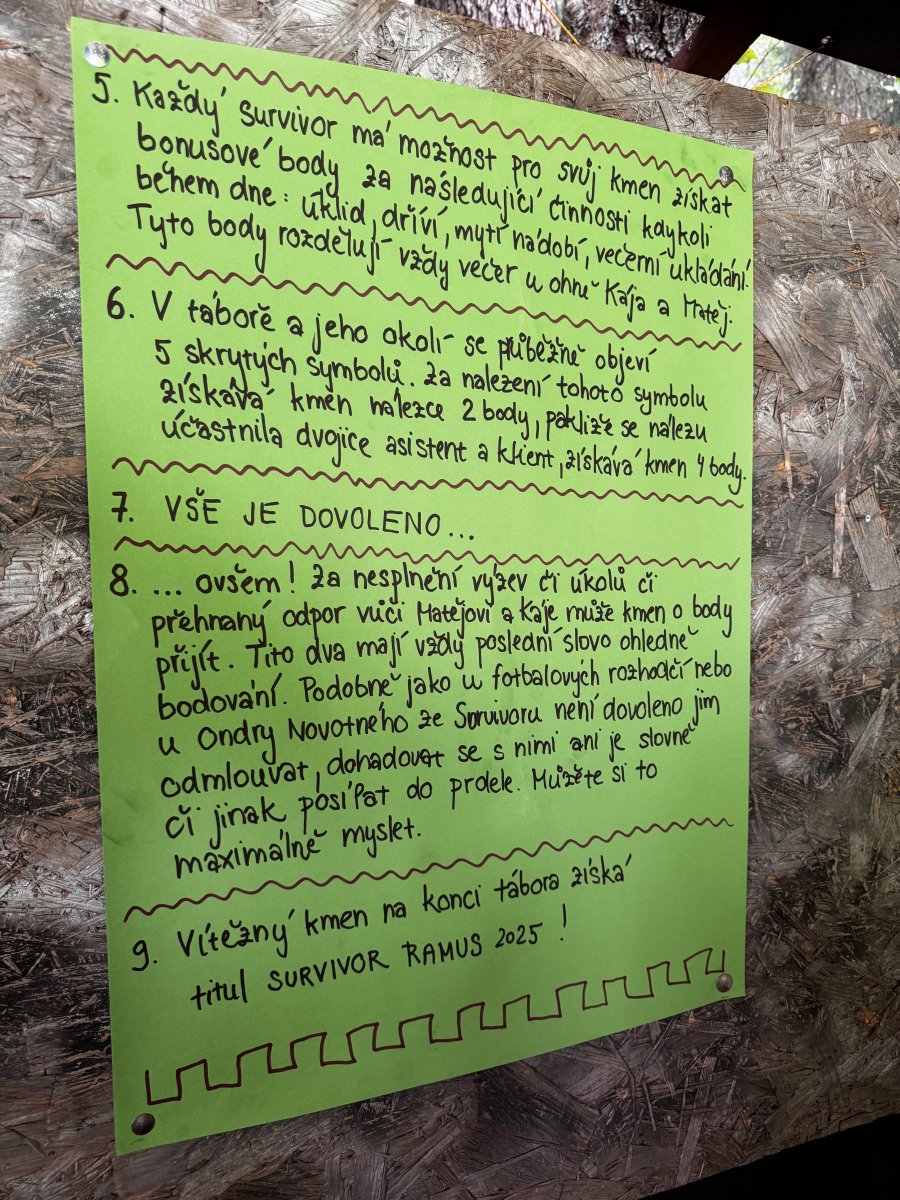 5. Každý survivor má možnost pro svůj kmen získat
bonusové body za následující činnosti kdykoli
během dne: úklid, dříví, mytí nádobí, večerní ukládání.
Tyto body rozdělují vždy večer u ohně Kája a Matěj.
6. V táboře a jeho okolí se průběžně objeví
5 skrytých symbolů. Za nalezení tohoto symbolu
získává kmen nálezce 2 body, pakliže se nálezu
účastnila dvojice asistent a klient, získává kmen 4 body.
7. VŠE JE DOVOLENO...
8. ... ovšem! Za nesplnění výzev či úkolů či
přehnaný odpor vůči Matějovi a Káje může kmen o body
přijít. Tito dva mají vždy poslední slovo ohledně
bodování. Podobně jako u fotbalových rozhodčí nebo
u Ondry Novotného ze Survivoru není dovoleno jim
odmlouvat, dohadovat se s nimi ani je slovně
či jinak posílat do prdele. Můžete si to
maximálně myslet.
9. Vítězný kmen na konci tábora získá
titul SURVIVOR RAMUS 2025!